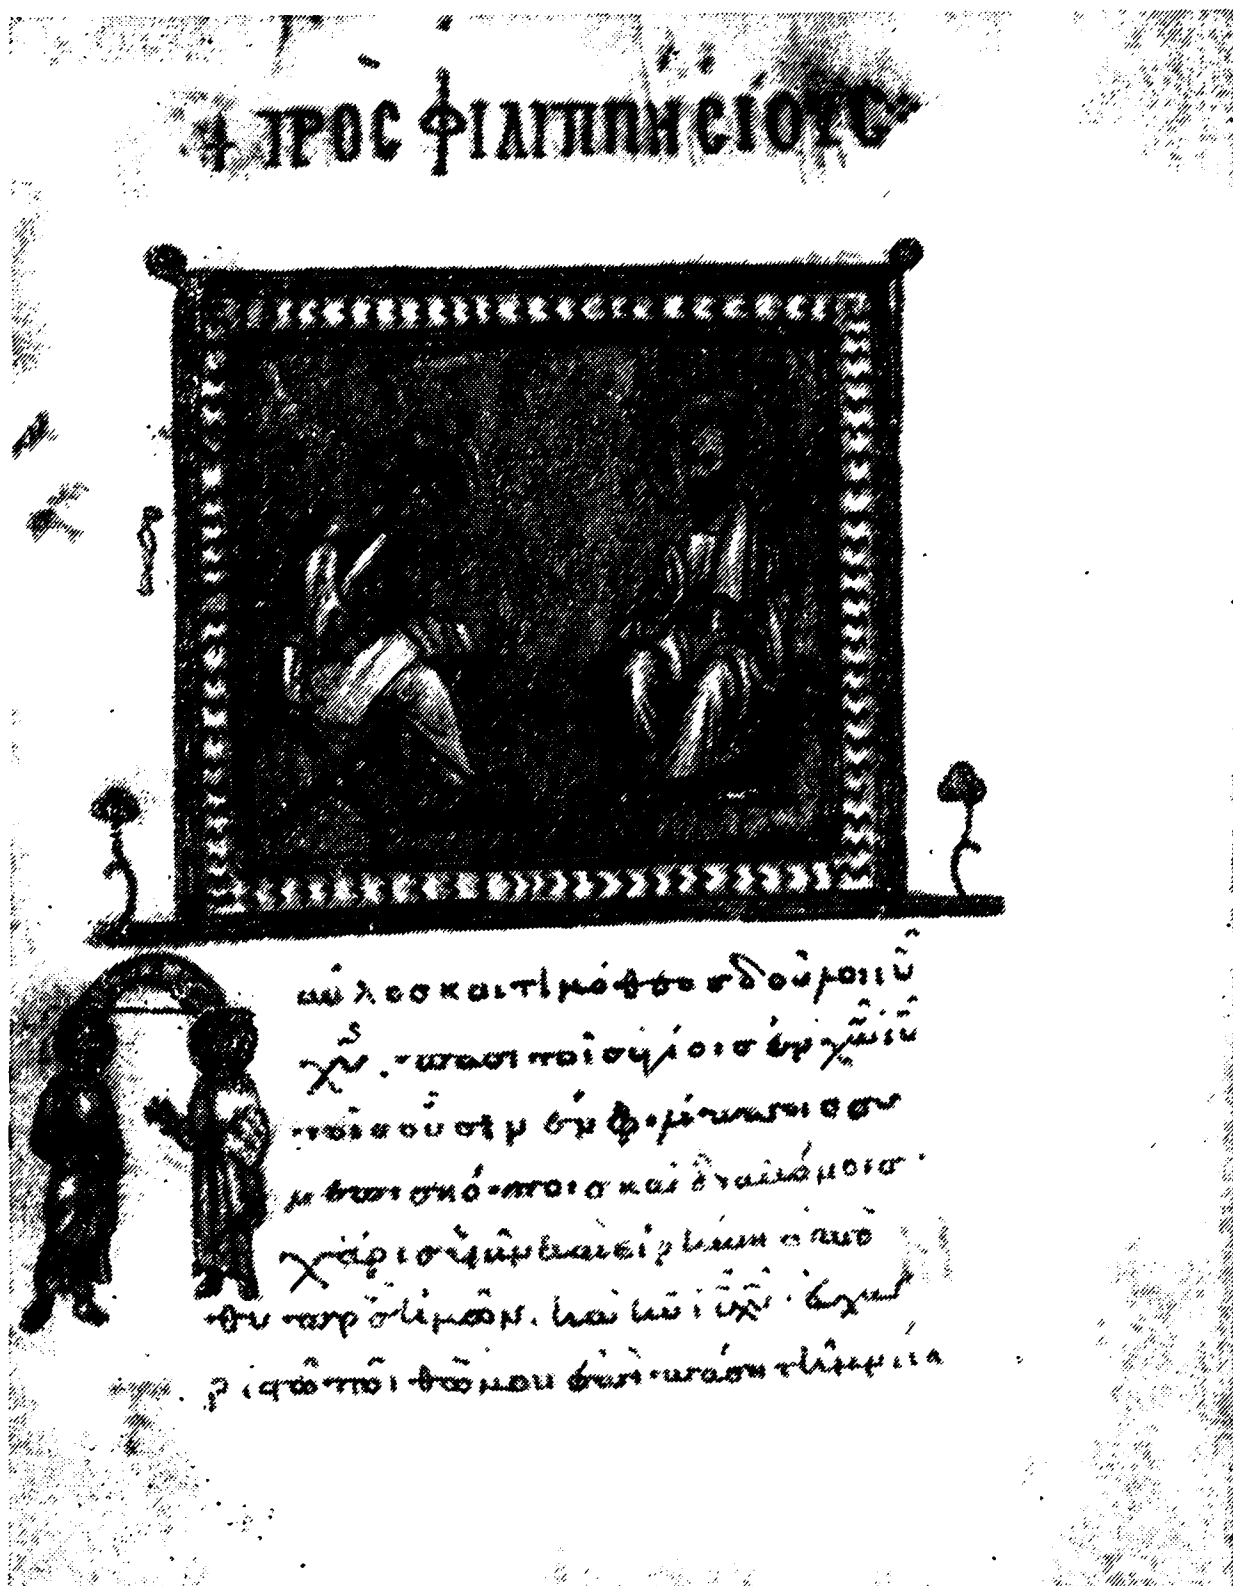 + ΠΡΟΣ ΦΙΛΙΠΠΗΣΙΟΥΣ
Παῦλος καὶ τιμόθεος δοῦλοι ιῦ
χῦ. πᾶσι τοῖς ἁγίοις ἐν χῶ ιῦ
τοῖς οὖσιν ἐν φιλίπποις συ
ν ἐπισκόποις καὶ διακόνοις.
χάρις ὑμῖν καὶ εἰρήνη ἀπὸ
θυ πρς ἡμῶν. καὶ κυ ιῦ χῦ. εὐχα
ριστῶ τῶ θῶ μου ἐπὶ πάση τῆ μνεία